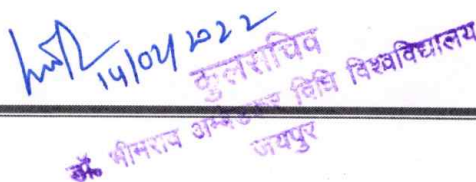 14/02/2022
कुलसचिव
डॉ. भीमराव अम्बेडकर विधि विश्वविद्यालय
जयपुर